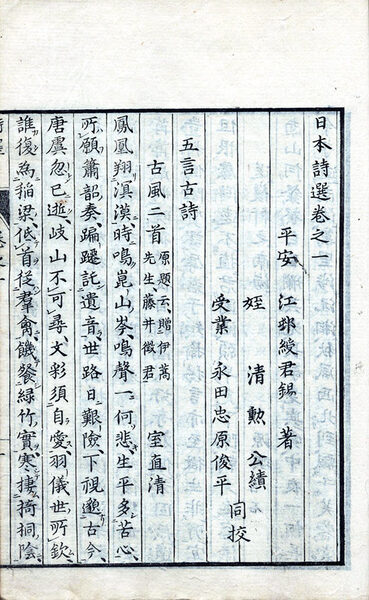 日本詩選卷之一
平安 江邨綬君錫 著
姪 清勲公績
受業 永田忠原俊平
同挍
五言古詩
古風二首 原題云贈伊萬先生藤井徵君 室直清
鳳凰翔溟漠時鳴崑山岑鳴聲一何悲生平多苦心
所願簫韶奏蹁躚託遺音世路日艱險下視邈古今
唐虞忽已逝岐山不可尋文彩須自愛羽儀世所欽
誰復為稻粱低首從羣禽饑餐緑竹實寒棲掎桐陰